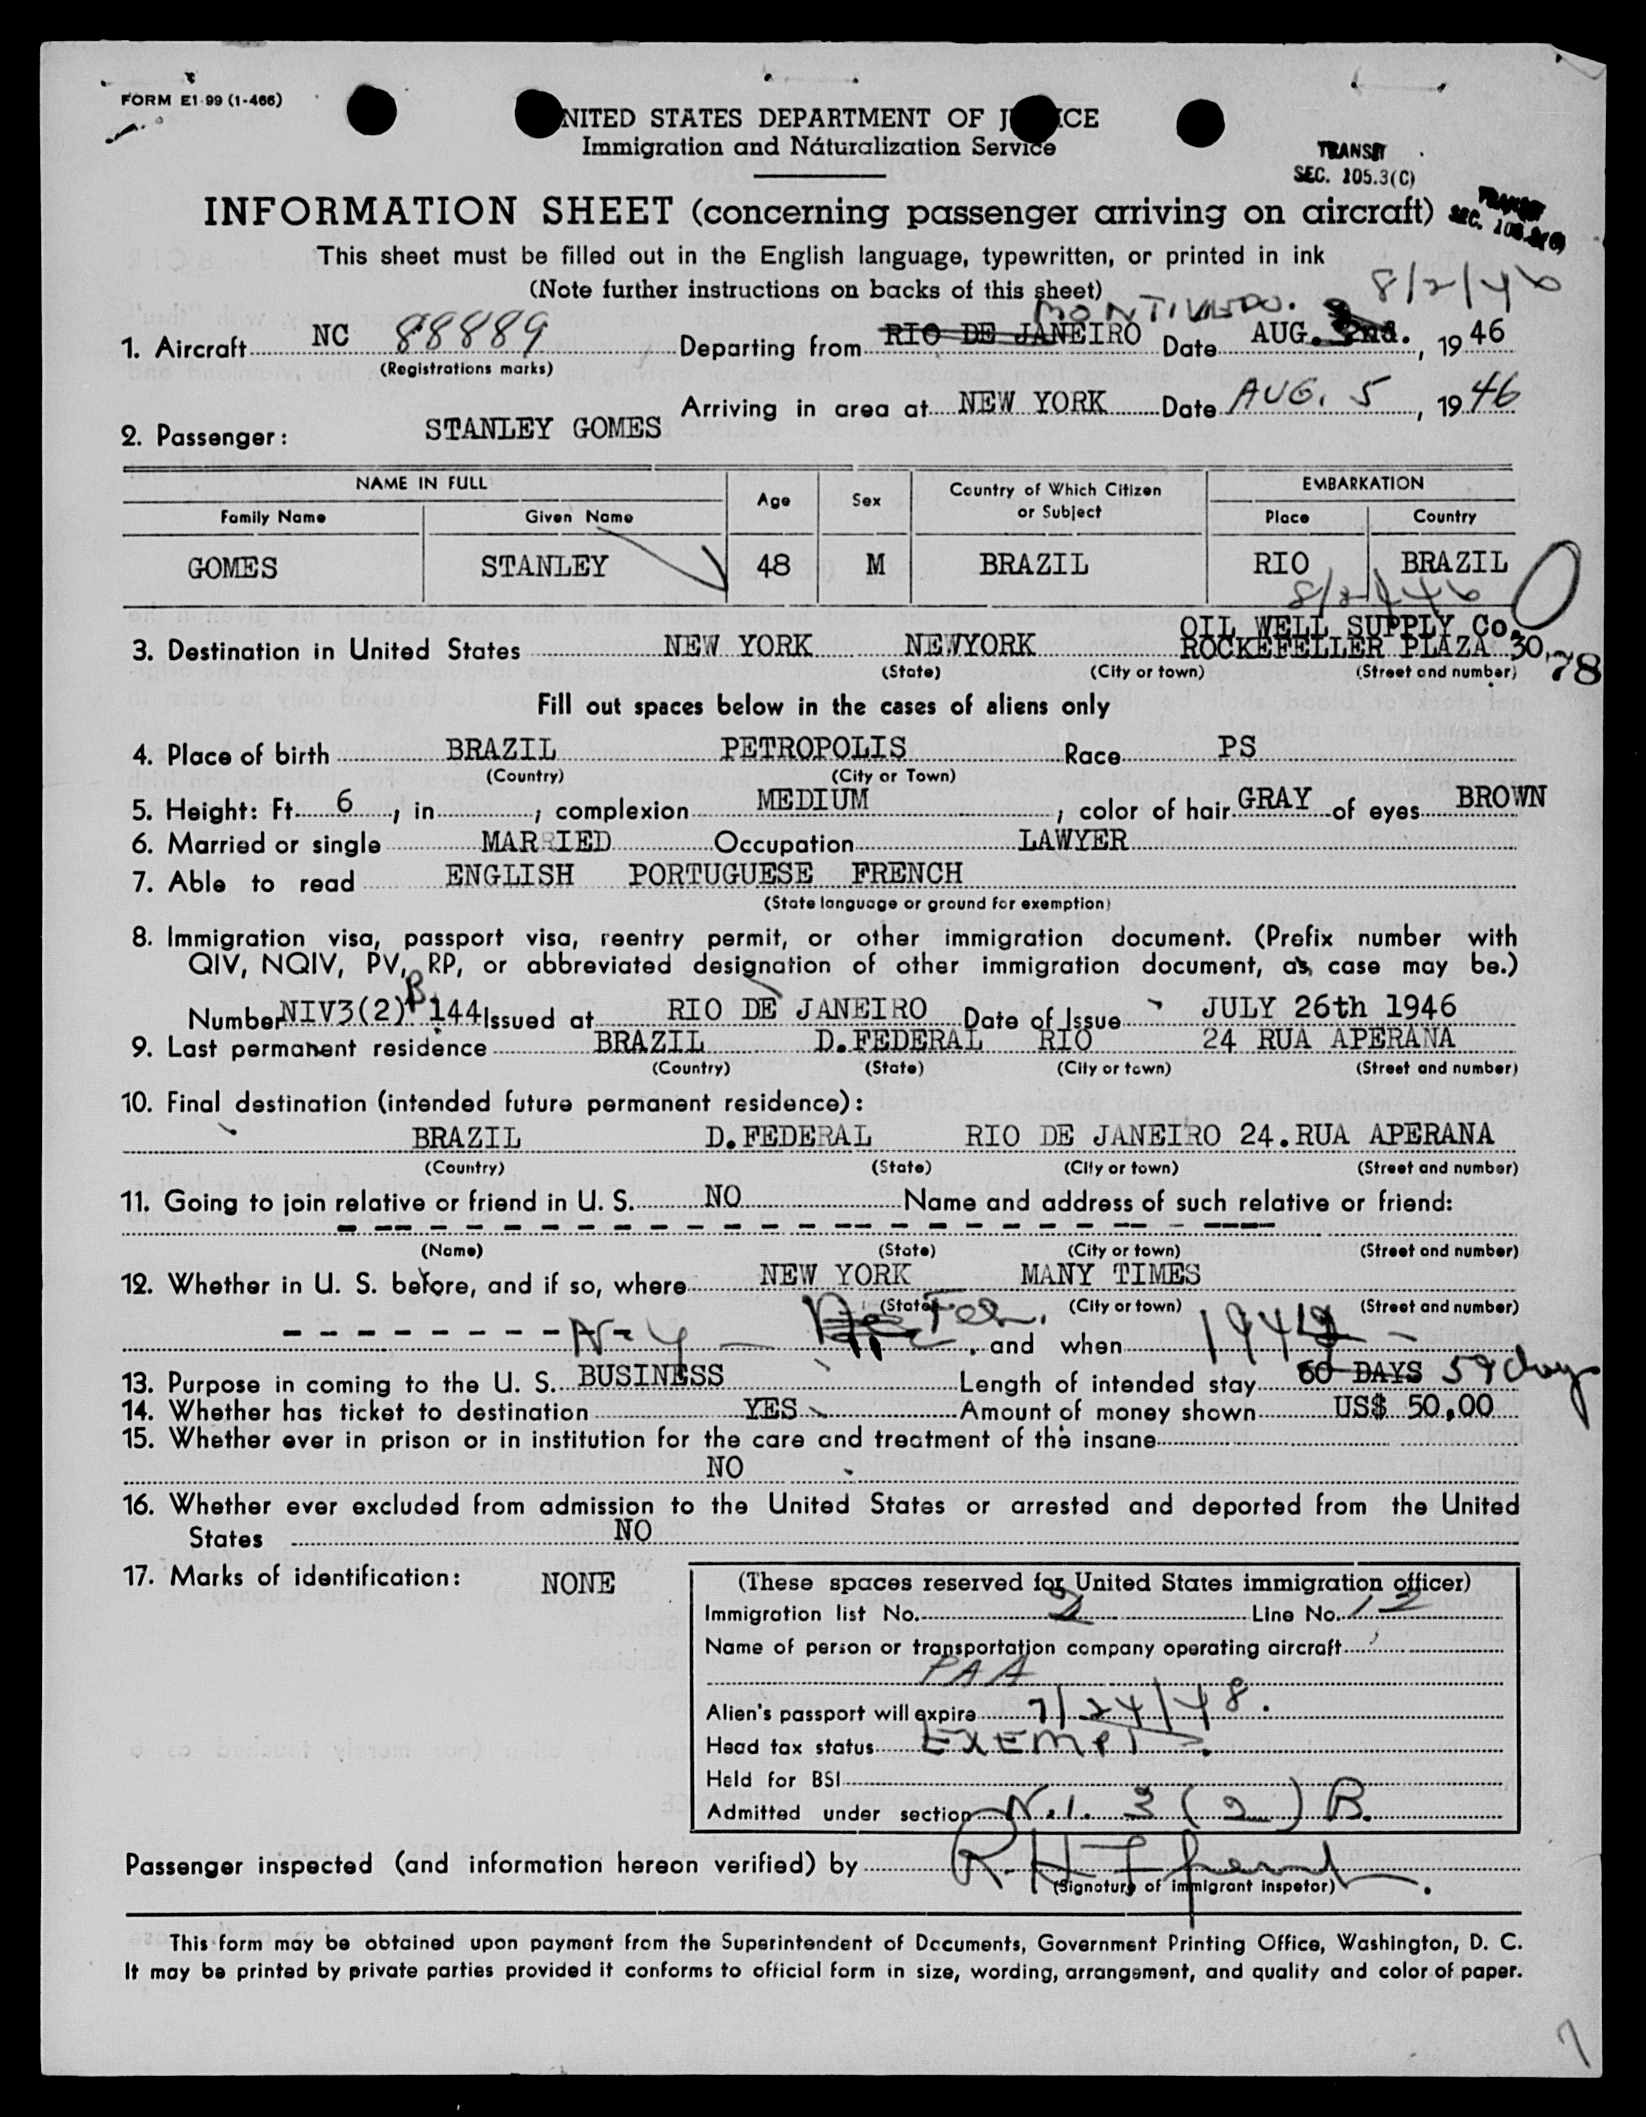 FORM E1-99 (1-466)
UNITED STATES DEPARTMENT OF JUSTICE
Immigration and Naturalization Service
TRANSIT
SEC. 105.3(C)
INFORMATION SHEET (concerning passenger arriving on aircraft)
TRANSIT
SEC. 105.3(C)
This sheet must be filled out in the English language, typewritten, or printed in ink
(Note further instructions on backs of this sheet)
8/2/46
MONTIVEDO. 3
1. Aircraft NC 88889 Departing from RIO DE JANEIRO Date AUG. 2nd. , 19 46
(Registrations marks)
Arriving in area at NEW YORK Date AUG. 5 , 19 46
2. Passenger: STANLEY GOMES
NAME IN FULL Age Sex Country of Which Citizen or Subject EMBARKATION
Family Name Given Name Place Country
GOMES STANLEY 48 M BRAZIL RIO BRAZIL
8/2/46
OIL WELL SUPPLY Co.
3. Destination in United States NEW YORK NEWYORK ROCKEFELLER PLAZA 30,
(State) (City or town) (Street and number) 78
Fill out spaces below in the cases of aliens only
4. Place of birth BRAZIL PETROPOLIS Race PS
(Country) (City or Town)
5. Height: Ft. 6 , in. ; complexion MEDIUM ; color of hair GRAY of eyes BROWN
6. Married or single MARRIED Occupation LAWYER
7. Able to read ENGLISH PORTUGUESE FRENCH
(State language or ground for exemption)
8. Immigration visa, passport visa, reentry permit, or other immigration document. (Prefix number with
QIV, NQIV, PV, RP, or abbreviated designation of other immigration document, as case may be.)
Number NIV3(2) B. 144 Issued at RIO DE JANEIRO Date of Issue JULY 26th 1946
9. Last permanent residence BRAZIL D.FEDERAL RIO 24 RUA APERANA
(Country) (State) (City or town) (Street and number)
10. Final destination (intended future permanent residence):
BRAZIL D.FEDERAL RIO DE JANEIRO 24.RUA APERANA
(Country) (State) (City or town) (Street and number)
11. Going to join relative or friend in U. S. NO Name and address of such relative or friend:
(Name) (State) (City or town) (Street and number)
12. Whether in U. S. before, and if so, where NEW YORK MANY TIMES
(State) (City or town) (Street and number)
N-Y - Feb. , and when
13. Purpose in coming to the U. S. BUSINESS Length of intended stay 60 DAYS 59 days
14. Whether has ticket to destination YES Amount of money shown US$ 50,00
15. Whether ever in prison or in institution for the care and treatment of the insane
NO
16. Whether ever excluded from admission to the United States or arrested and deported from the United
States NO
17. Marks of identification: NONE
(These spaces reserved for United States immigration officer)
Immigration list No. 2 Line No. 12
Name of person or transportation company operating aircraft
PAA
Alien's passport will expire 7/24/48.
Head tax status EXEMPT.
Held for BSI
Admitted under section N.I. 3 (2) B.
Passenger inspected (and information hereon verified) by
(Signature of immigrant inspetor)
This form may be obtained upon payment from the Superintendent of Documents, Government Printing Office, Washington, D. C.
It may be printed by private parties provided it conforms to official form in size, wording, arrangement, and quality and color of paper.